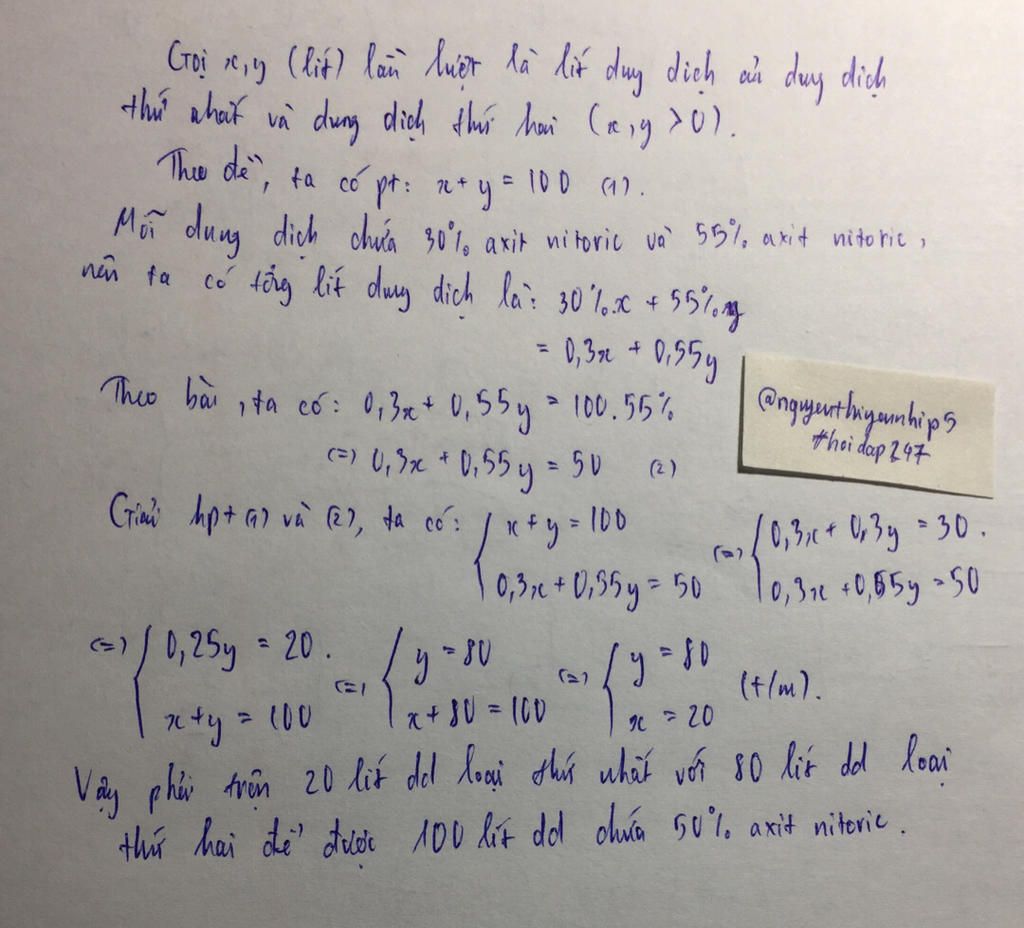 Gọi x,y (lít) lần lượt là lít duy dịch củ duy dịch
thứ nhất và dung dịch thứ hai (x,y > 0).
Theo đề, ta có pt: x + y = 100 (1).
Mỗi dung dịch chứa 30% axit nitoric và 55% axit nitoric,
nên ta có tổng lít dung dịch là: 30%.x + 55%.y
= 0,3x + 0,55y
Theo bài, ta có: 0,3x + 0,55y = 100.55%
(=) 0,3x + 0,55y = 50 (2)
@nguyenthiyennhip5
#hoidap247
Giải hpt (1) và (2), ta có: { x + y = 100 (=) { 0,3x + 0,3y = 30.
0,3x + 0,55y = 50 0,3x + 0,55y = 50
(=) { 0,25y = 20. (=) { y = 80 (=) { y = 80 (t/m).
x + y = 100 x + 80 = 100 x = 20
Vậy phải trộn 20 lít dd loại thứ nhất với 80 lít dd loại
thứ hai để được 100 lít dd chứa 50% axit nitoric.